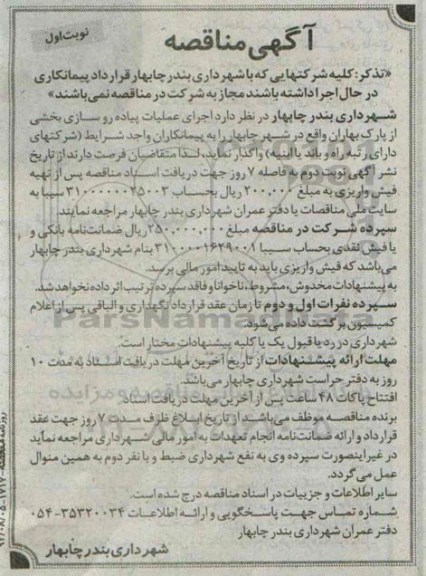 نوبت اول
آگهی مناقصه
«تذکر: کلیه شرکتهایی که با شهرداری بندر چابهار قرارداد پیمانکاری
در حال اجرا داشته باشند مجاز به شرکت در مناقصه نمی‌باشند»
شهرداری بندر چابهار در نظر دارد اجرای عملیات پیاده رو سازی بخشی
از پارک بهاران واقع در شهر چابهار را به پیمانکاران واجد شرایط (شرکتهای
دارای رتبه راه و باند یا ابنیه) واگذار نماید، لذا متقاضیان فرصت دارند از تاریخ
نشر آگهی نوبت دوم به فاصله ۷ روز جهت دریافت اسناد مناقصه پس از تهیه
فیش واریزی به مبلغ ۲۰۰,۰۰۰ ریال بحساب سیبا به
سایت ملی مناقصات یا دفتر عمران شهرداری مراجعه نمایند.
سپرده شرکت در مناقصه مبلغ ۲۵۰,۰۰۰,۰۰۰ ریال ضمانت‌نامه بانکی و
یا فیش نقدی بحساب سیبا ۳۱۰۰۰۰۱۶۲۹۰۰۱ بنام شهرداری بندر چابهار
می‌باشد که فیش واریزی باید به تایید امور مالی برسد.
به پیشنهادات مخدوش، مشروط، ناخوانا و فاقد سپرده ترتیب اثر داده نخواهد شد.
سپرده نفرات اول و دوم تا زمان عقد قرارداد نگهداری و الباقی پس از اعلام
کمیسیون برگشت داده می‌شود.
شهرداری در رد یا قبول یک یا کلیه پیشنهادات مختار است.
مهلت ارائه پیشنهادات از تاریخ آخرین مهلت دریافت اسناد به مدت ۱۰
روز به دفتر حراست شهرداری چابهار می‌باشد.
افتتاح پاکات ۴۸ ساعت پس از آخرین مهلت دریافت اسناد.
برنده مناقصه موظف می‌باشد از تاریخ ابلاغ ظرف مدت ۷ روز جهت عقد
قرارداد و ارائه ضمانت‌نامه انجام تعهدات به امور مالی شهرداری مراجعه نماید
در غیر اینصورت سپرده وی به نفع شهرداری ضبط و با نفر دوم به همین منوال
عمل می‌گردد.
سایر اطلاعات و جزییات در اسناد مناقصه درج شده است.
شماره تماس جهت پاسخگویی و ارائه اطلاعات ۳۵۳۲۰۰۳۴-۰۵۴
دفتر عمران شهرداری بندر چابهار
شهرداری بندر چابهار
ParsNamadData